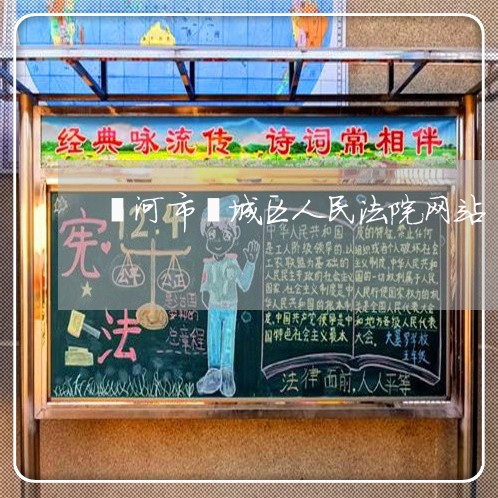 经典咏流传 诗词常相伴
河市 城区人民法院网站
12.4
宪法
公平
公正
总章程
中华人民共和国
是工人阶级领导的,以
工农联盟为基础的
人民民主专政的社会主义
国家,社会主义制度是中
华人民共和国的根本制
度,中国共产党领导是中
国特色社会主义最本
质的特征,禁止任何
组织或者个人破坏社会
主义制度,中华人民共和
国的一切权利属于人民,
人民行使国家权力的机
关是全国人民代表大会
和地方各级人民代表
大会。
五年级
法律面前,人人平等